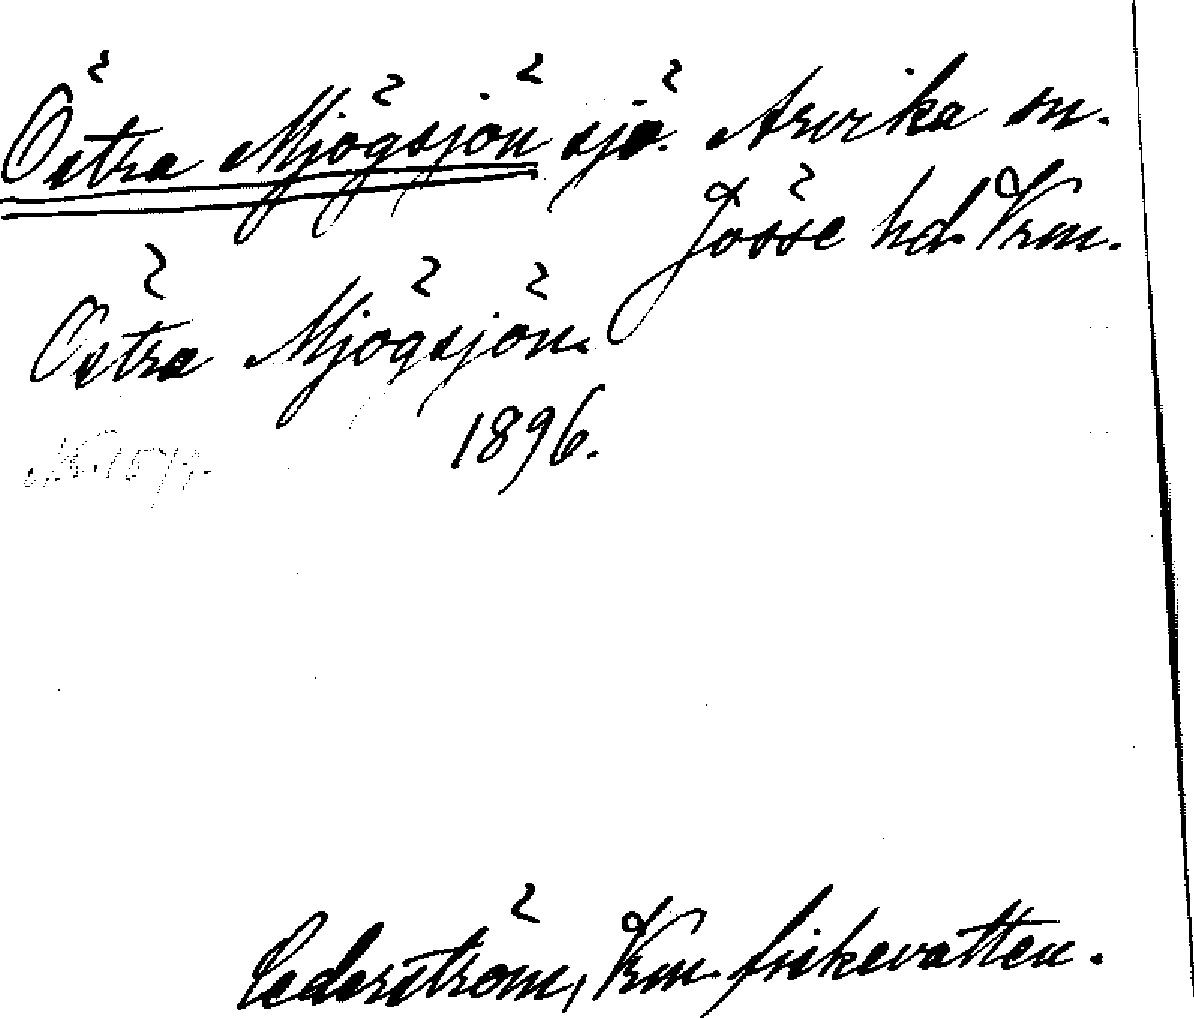 Östra Mjögsjön sjö. Arvika sn.
Jösse hd. Vrm.
Östra Mjögsjön.
1896.
Cederström, Vrm. fiskevatten.